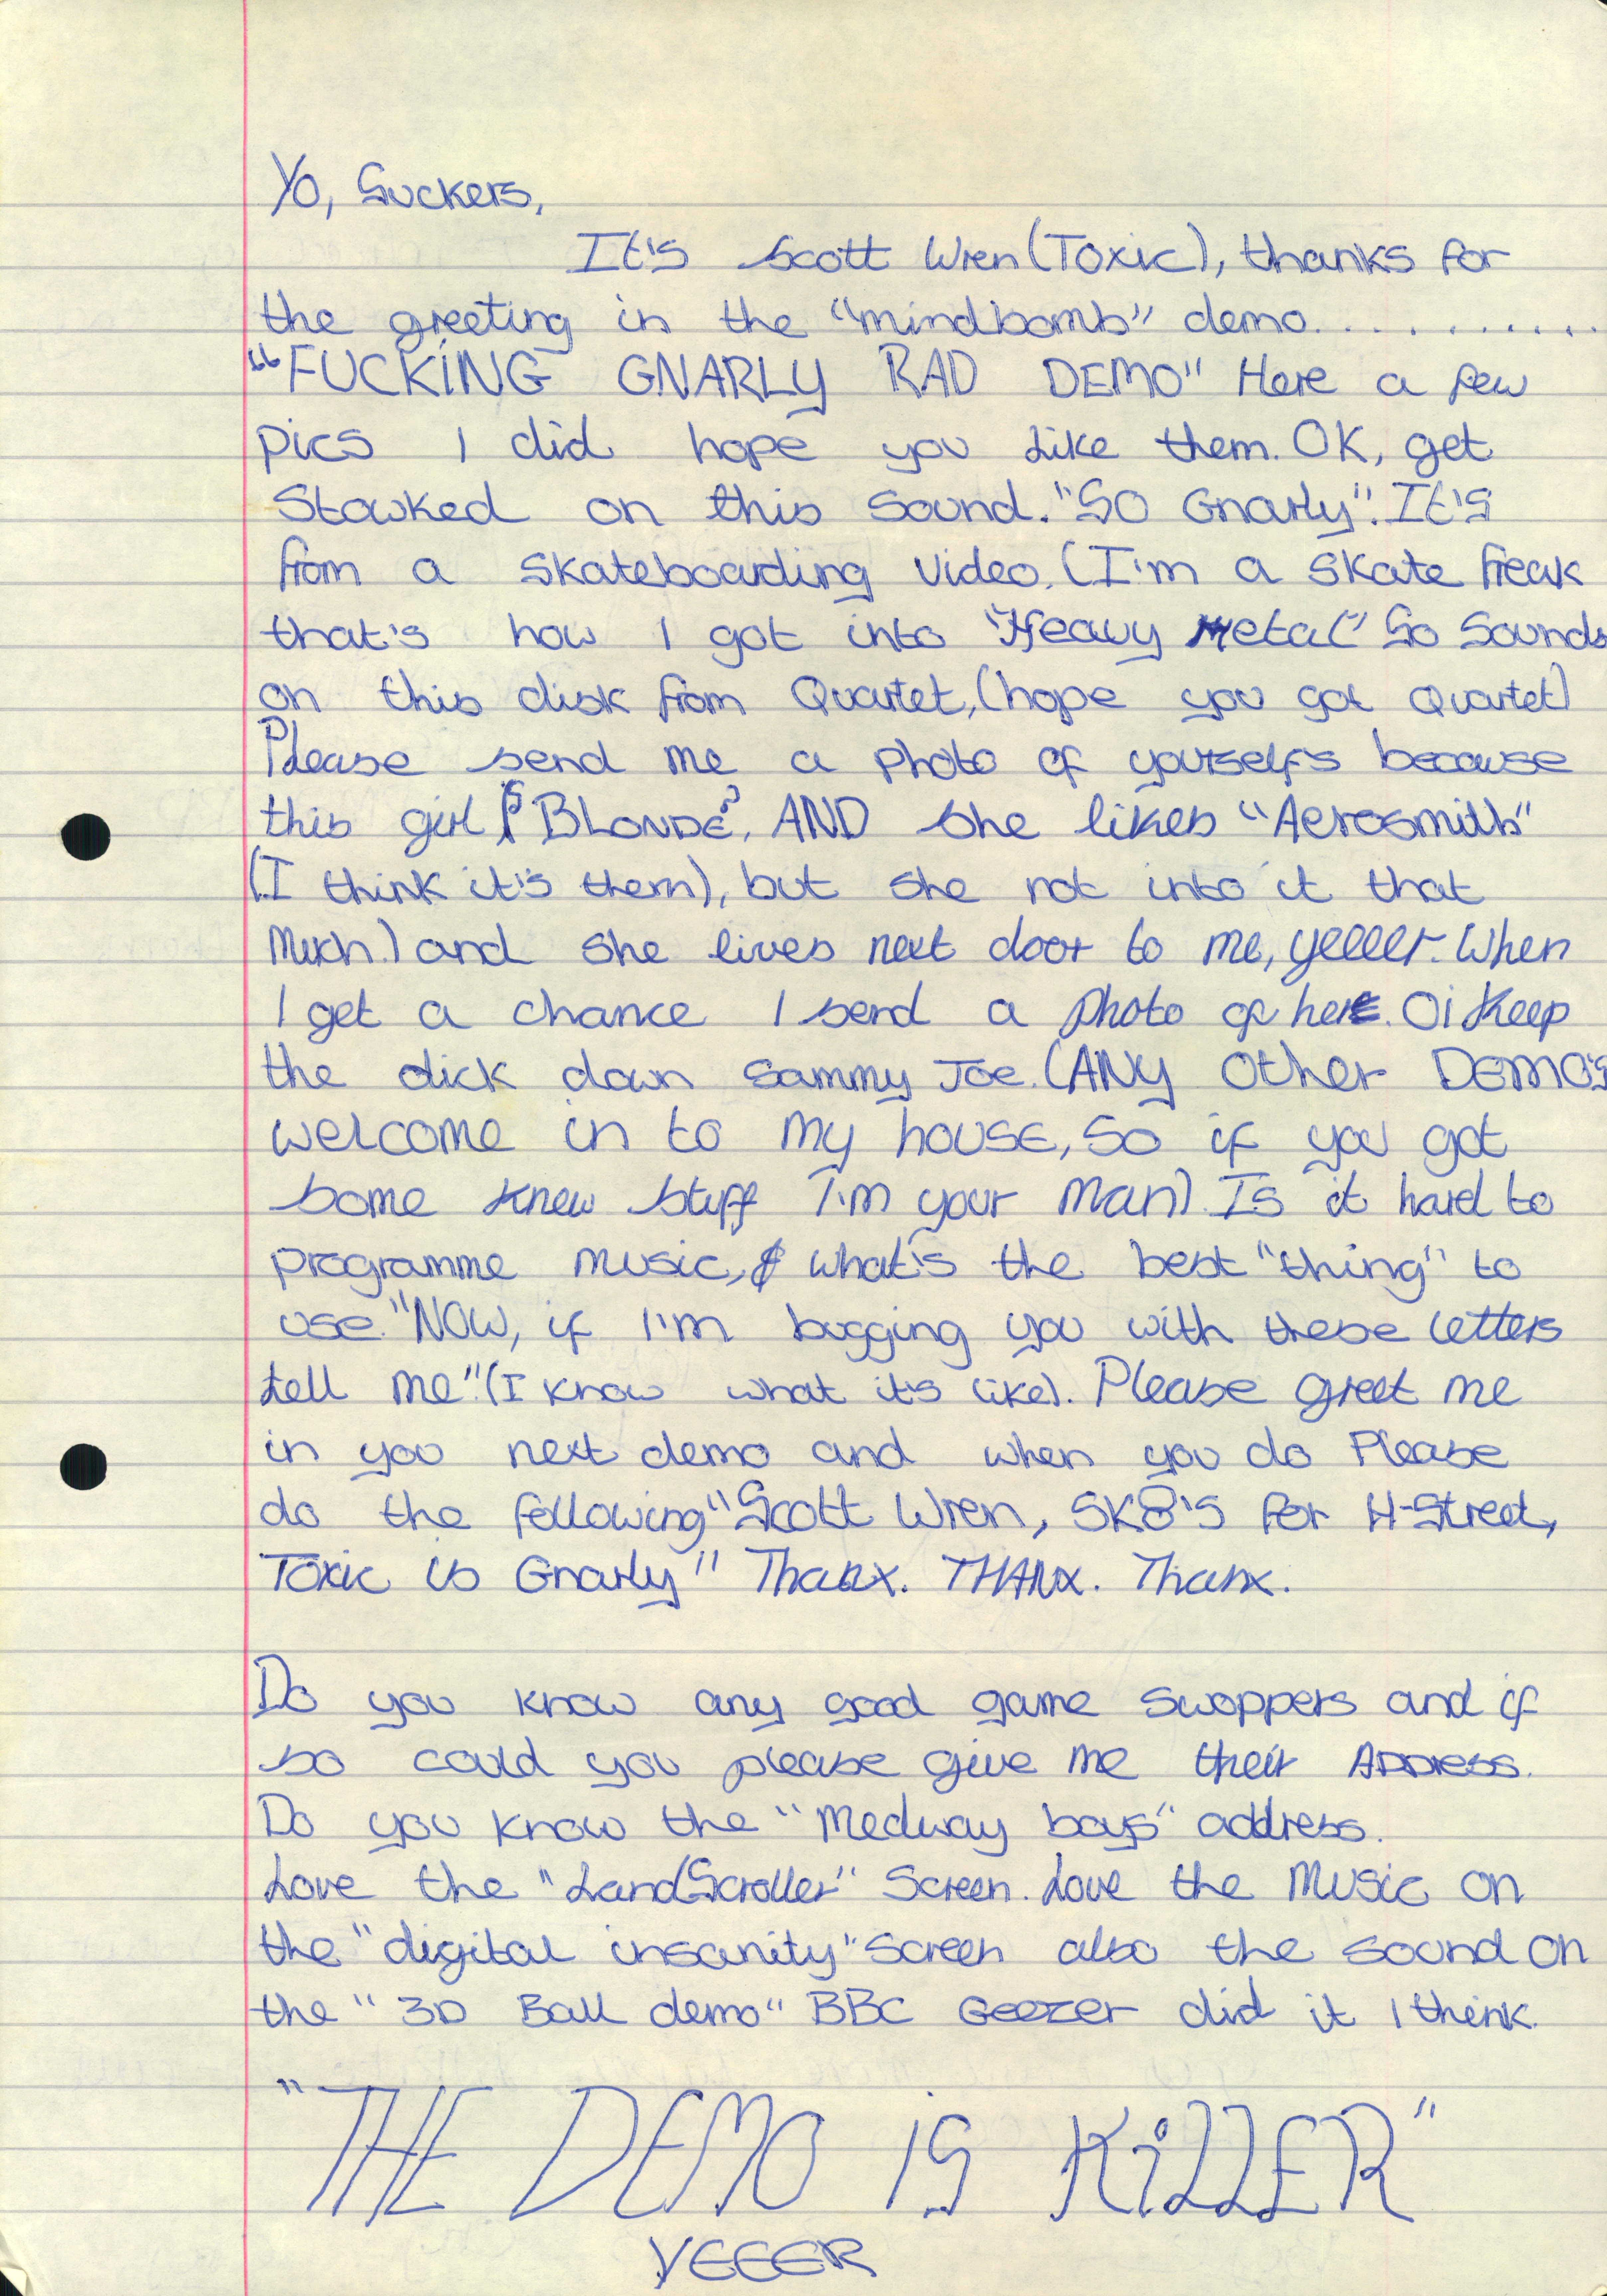 Yo, Suckers,
It's Scott Wren (Toxic), thanks for
the greeting in the "mindbomb" demo...........
"FUCKING GNARLY RAD DEMO" Here a few
pics I did hope you like them. OK, get
Stowked on this sound. "SO Gnarly". It's
from a skateboarding video. (I'm a skate freak
that's how I got into "Heavy Metal" So Sounds
on this disk from Quartet, (hope you got Quartet)
Please send me a photo of yourselfs because
this girl ("BLONDE", AND she likes "Aerosmith"
(I think it's them), but she not into it that
much.) and she lives next door to me, yeeeer. When
I get a chance I send a photo of her. Oi Keep
the dick down Sammy Joe. (ANY Other DEMO'S
welcome in to my house, so if you got
some knew stuff I'm your man). Is it hard to
programme music, & what's the best "thing" to
use. "NOW, if I'm bugging you with these letters
tell me" (I know what it's like). Please greet me
in you next demo and when you do Please
do the following "Scott Wren, SK8'S for H-Street,
Toxic is Gnarly" Thanx. THANX. Thanx.
Do you know any good game swoppers and if
so could you please give me their Address.
Do you know the "Medway boys" address.
Love the "LandScroller" Screen. Love the Music on
the "digital insanity" screen also the sound on
the "3D Ball demo" BBC Geezer did it I think.
"THE DEMO IS KiLLER"
YEEER